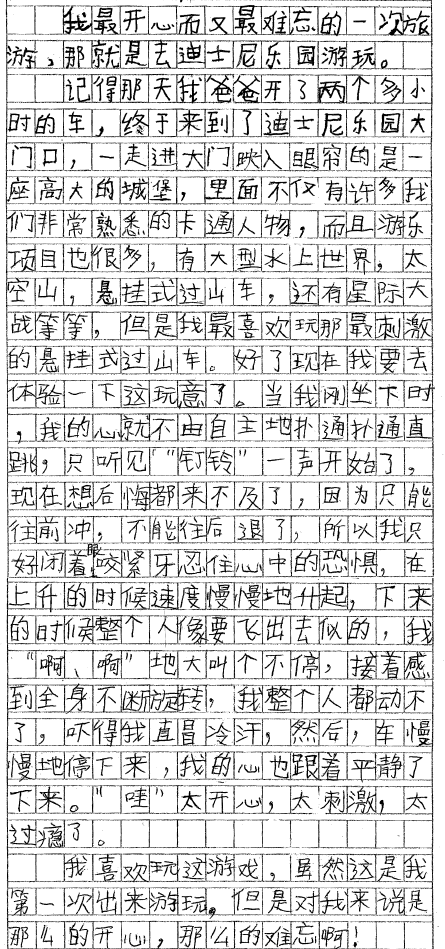 我最开心而又最难忘的一次旅
游，那就是去迪士尼乐园游玩。
记得那天我爸爸开了两个多小
时的车，终于来到了迪士尼乐园大
门口，一走进大门映入眼帘的是一
座高大的城堡，里面不仅有许多我
们非常熟悉的卡通人物，而且游乐
项目也很多，有大型水上世界，太
空山，悬挂式过山车，还有星际大
战等等，但是我最喜欢玩那最刺激
的悬挂式过山车。好了现在我要去
体验一下这玩意了。当我刚坐下时
，我的心就不由自主地扑通扑通直
跳，只听见“钉铃”一声开始了，
现在想后悔都来不及了，因为只能
往前冲，不能往后退了，所以我只
好闭着眼咬紧牙忍住心中的恐惧，在
上升的时候速度慢慢地升起，下来
的时候整个人像要飞出去似的，我
“啊、啊”地大叫个不停，接着感
到全身不断旋转，我整个人都动不
了，吓得我直冒冷汗，然后，车慢
慢地停下来，我的心也跟着平静了
下来。“哇”太开心，太刺激，太
过瘾了。
我喜欢玩这游戏，虽然这是我
第一次出来游玩。但是对我来说是
那么的开心，那么的难忘啊！